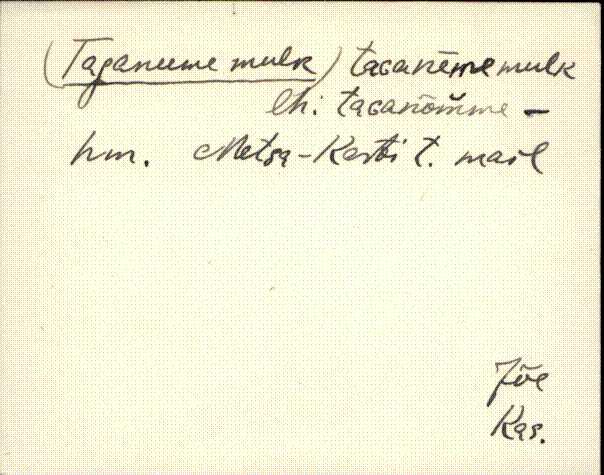 (Taganeeme mulk) taGanēmemulk
eh. taGanõm̄me –
hm. Metsa-Kartsi t. maal
Jõe
Kas.